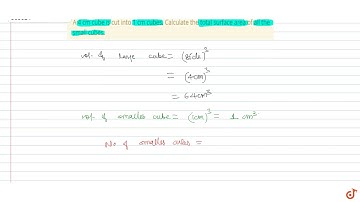 A 4 cm cube is cut into 1 cm cubes. Calculate the total surface area of all the small cubes.
vol. of large cube = (side)³
= (4cm)³
= 64cm³
vol. of smaller cube = (1cm)³ = 1 cm³
No of smaller cubes =